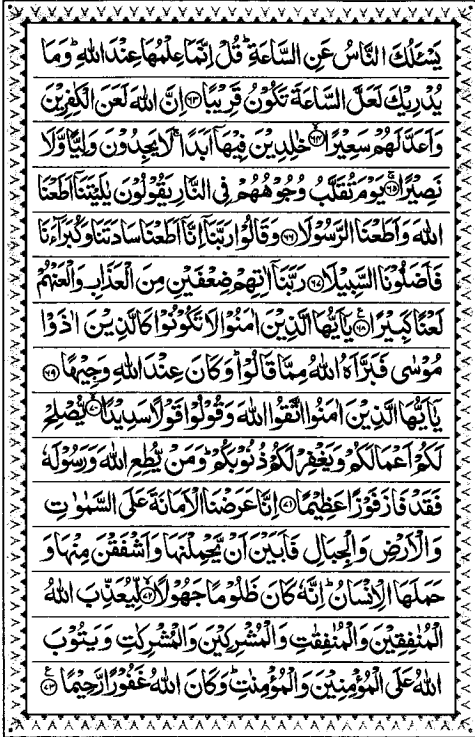 يَسْـَٔلُكَ النَّاسُ عَنِ السَّاعَةِ ؕ قُلْ اِنَّمَا عِلْمُهَا عِنْدَ اللّٰهِ ؕ وَمَا
يُدْرِيْكَ لَعَلَّ السَّاعَةَ تَكُوْنُ قَرِيْبًا ﴿۶۳﴾ اِنَّ اللّٰهَ لَعَنَ الْكٰفِرِيْنَ
وَاَعَدَّ لَهُمْ سَعِيْرًا ﴿۶۴﴾ خٰلِدِيْنَ فِيْهَاۤ اَبَدًا ۚ لَا يَجِدُوْنَ وَلِيًّا وَّلَا
نَصِيْرًا ﴿۶۵﴾ يَوْمَ تُقَلَّبُ وُجُوْهُهُمْ فِى النَّارِ يَقُوْلُوْنَ يٰلَيْتَنَاۤ اَطَعْنَا
اللّٰهَ وَاَطَعْنَا الرَّسُوْلَا ﴿۶۶﴾ وَقَالُوْا رَبَّنَاۤ اِنَّاۤ اَطَعْنَا سَادَتَنَا وَكُبَرَآءَنَا
فَاَضَلُّوْنَا السَّبِيْلَا ﴿۶۷﴾ رَبَّنَاۤ اٰتِهِمْ ضِعْفَيْنِ مِنَ الْعَذَابِ وَالْعَنْهُمْ
لَعْنًا كَبِيْرًا ﴿۶۸﴾ يٰۤاَيُّهَا الَّذِيْنَ اٰمَنُوْا لَا تَكُوْنُوْا كَالَّذِيْنَ اٰذَوْا
مُوْسٰى فَبَرَّاَهُ اللّٰهُ مِمَّا قَالُوْا ؕ وَكَانَ عِنْدَ اللّٰهِ وَجِيْهًا ﴿۶۹﴾
يٰۤاَيُّهَا الَّذِيْنَ اٰمَنُوا اتَّقُوا اللّٰهَ وَقُوْلُوْا قَوْلًا سَدِيْدًا ﴿۷۰﴾ يُّصْلِحْ
لَكُمْ اَعْمَالَكُمْ وَيَغْفِرْ لَكُمْ ذُنُوْبَكُمْ ؕ وَمَنْ يُّطِعِ اللّٰهَ وَرَسُوْلَهٗ
فَقَدْ فَازَ فَوْزًا عَظِيْمًا ﴿۷۱﴾ اِنَّا عَرَضْنَا الْاَمَانَةَ عَلَى السَّمٰوٰتِ
وَالْاَرْضِ وَالْجِبَالِ فَاَبَيْنَ اَنْ يَّحْمِلْنَهَا وَاَشْفَقْنَ مِنْهَا وَ
حَمَلَهَا الْاِنْسَانُ ؕ اِنَّهٗ كَانَ ظَلُوْمًا جَهُوْلًا ﴿۷۲﴾ لِّيُعَذِّبَ اللّٰهُ
الْمُنٰفِقِيْنَ وَالْمُنٰفِقٰتِ وَالْمُشْرِكِيْنَ وَالْمُشْرِكٰتِ وَيَتُوْبَ
اللّٰهُ عَلَى الْمُؤْمِنِيْنَ وَالْمُؤْمِنٰتِ ؕ وَكَانَ اللّٰهُ غَفُوْرًا رَّحِيْمًا ﴿۷۳﴾ ع